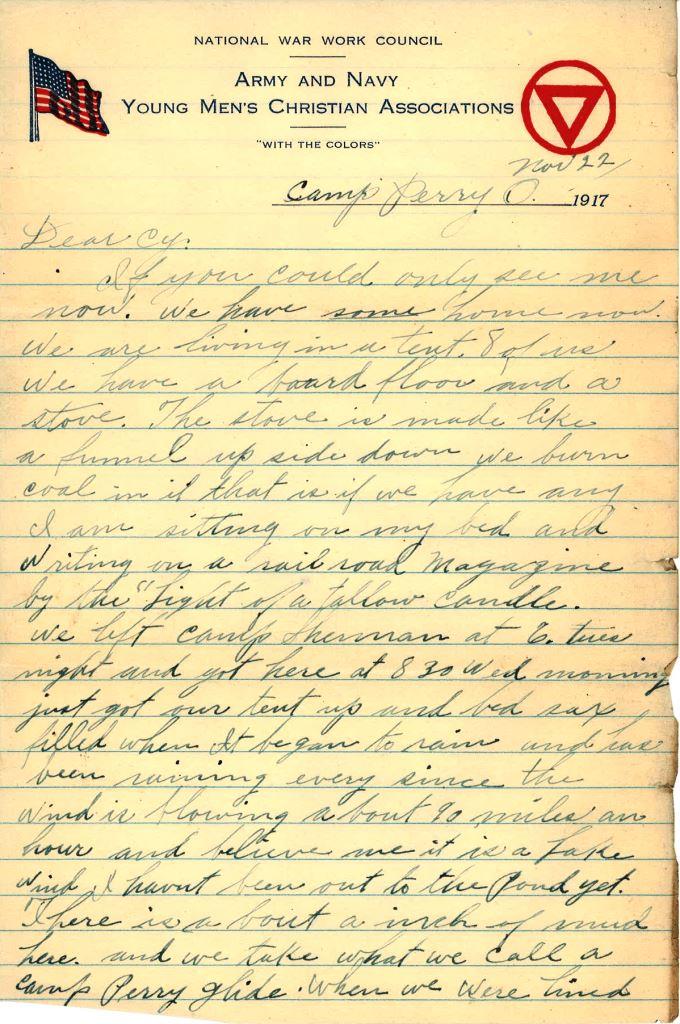 NATIONAL WAR WORK COUNCIL
ARMY AND NAVY
YOUNG MEN'S CHRISTIAN ASSOCIATIONS
"WITH THE COLORS"
Nov 22/
Camp Perry O. 1917
Dear Cy:
If you could only see me
now. We have some home now.
We are living in a tent. 8 of us
We have a board floor and a
stove. The stove is made like
a funnel up side down we burn
coal in it that is if we have any
I am sitting on my bed and
writing on a rail road magazine
by the "Light of a Tallow Candle.
We left Camp Sherman at 6. tues
night and got here at 8 30 Wed morning
just got our tent up and bed sax
filled when It began to rain and has
been raining every since the
wind is blowing about 90 miles an
hour and believe me it is a Lake
wind I havnt been out to the Pond yet.
There is about a inch of mud
here. and we take what we call a
Camp Perry glide. When we were lined